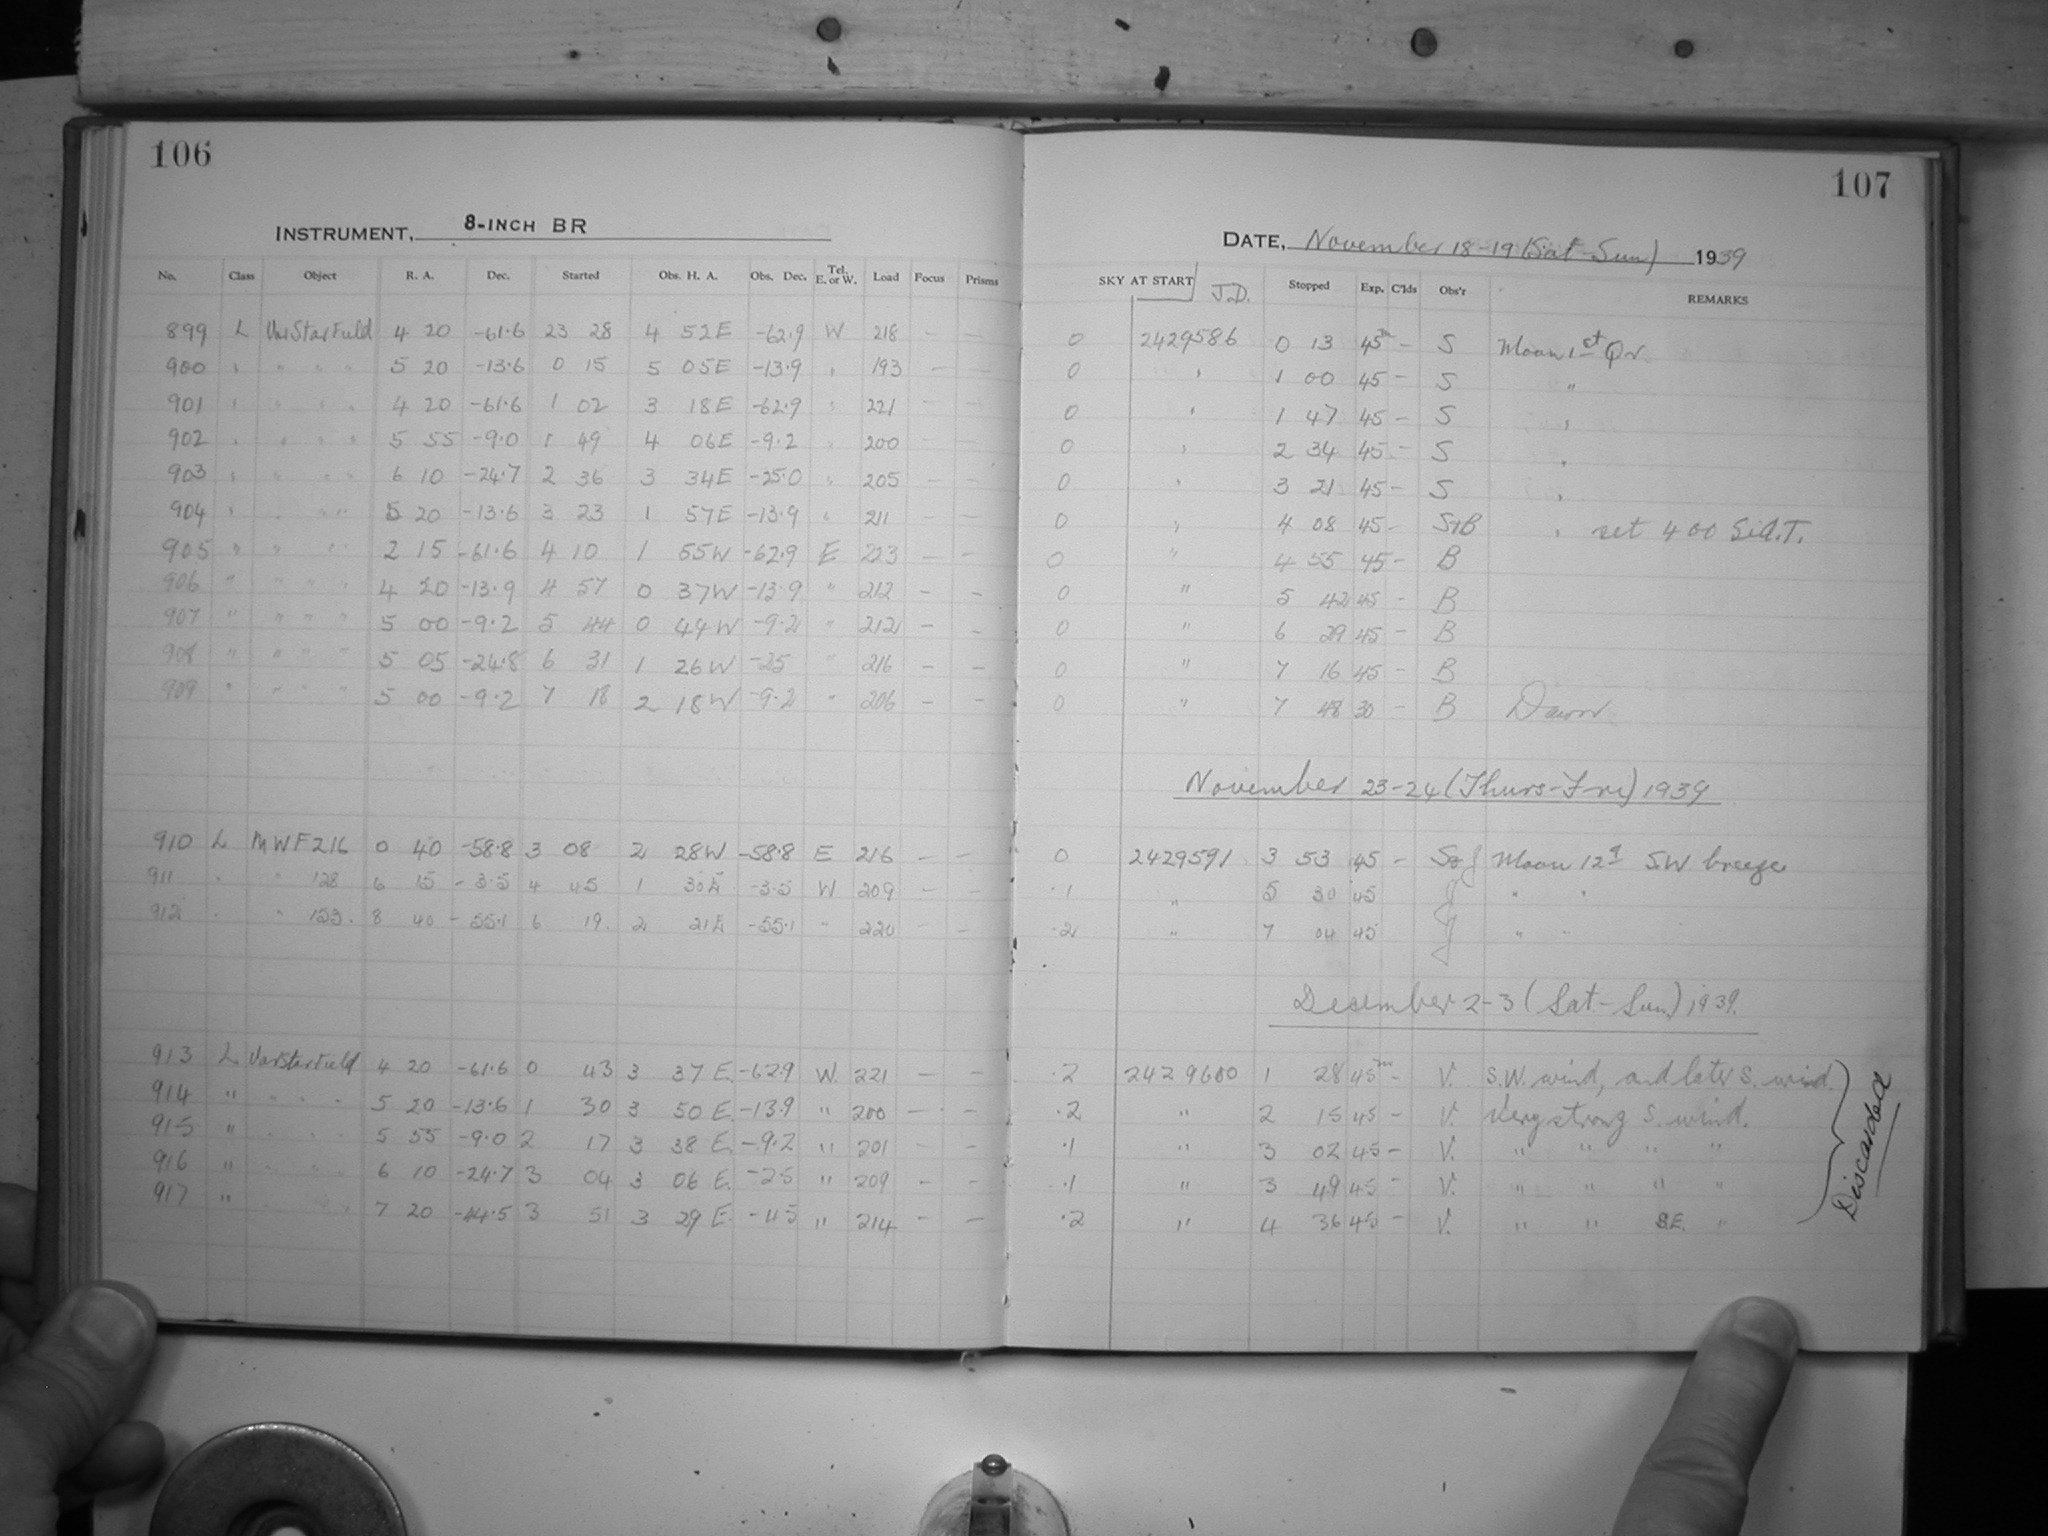 106
INSTRUMENT, 8-INCH BR
No. Class Object R. A. Dec. Started Obs. H. A. Obs. Dec. Tel. E. or W. Load Focus Prisms
899 L VarStarField 4 20 -61.6 23 28 4 52E -62.9 W 218 — —
900 " " " " 5 20 -13.6 0 15 5 05E -13.9 " 193 — —
901 " " " " 4 20 -61.6 1 02 3 18E -62.9 " 221 — —
902 " " " " 5 55 -9.0 1 49 4 06E -9.2 " 200 — —
903 " " " " 6 10 -24.7 2 36 3 34E -25.0 " 205 — —
904 " " " " 5 20 -13.6 3 23 1 57E -13.9 " 211 — —
905 " " " " 2 15 -61.6 4 10 1 55W -62.9 E 223 — —
906 " " " " 4 20 -13.9 4 57 0 37W -13.9 " 212 — —
907 " " " " 5 00 -9.2 5 44 0 49W -9.2 " 212 — —
908 " " " " 5 05 -24.8 6 31 1 26W -25 " 216 — —
909 " " " " 5 00 -9.2 7 18 2 18W -9.2 " 206 — —
910 L MWF216 0 40 -58.8 3 08 2 28W -58.8 E 216 — —
911 " " 128 6 15 -3.5 4 45 1 30E -3.5 W 209 — —
912 " " 153. 8 40 -55.1 6 19. 2 21E -55.1 " 220 — —
913 L VarStarField 4 20 -61.6 0 43 3 37 E. -62.9 W. 221 — —
914 " " " " 5 20 -13.6 1 30 3 50 E. -13.9 " 200 — —
915 " " " " 5 55 -9.0 2 17 3 38 E. -9.2 " 201 — —
916 " " " " 6 10 -24.7 3 04 3 06 E. -25 " 209 — —
917 " " 7 20 -44.5 3 51 3 29 E. -45 " 214 — —
107
DATE, November 18-19 (Sat-Sun) 1939
SKY AT START J.D. Stopped Exp. C'lds Obs'r REMARKS
0 2429586 0 13 45m — S Moon 1st Qr
0 " 1 00 45 — S "
0 " 1 47 45 — S "
0 " 2 34 45 — S "
0 " 3 21 45 — S "
0 " 4 08 45 — S+B " set 4 00 Sid.T.
0 " 4 55 45 — B
0 " 5 42 45 — B
0 " 6 29 45 — B
0 " 7 16 45 — B
0 " 7 48 30 — B Dawn
November 23-24 (Thurs-Fri) 1939
0 2429591 3 53 45 — Moon 12d SW breeze
.1 " 5 30 45 J " "
.2 " 7 04 45 J " "
December 2-3 (Sat-Sun) 1939.
.2 2429600 1 28 45m — V. S.W. wind, and later S. wind.
.2 " 2 15 45 — V. Very strong S. wind.
.1 " 3 02 45 — V. " " " "
.1 " 3 49 45 — V. " " " "
.2 " 4 36 45 — V. " " S.E. "
Discarded